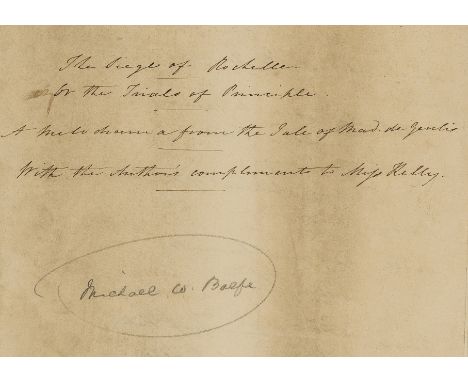 The Siege of Rochelle.
Or the Trials of Principle.
A Melo drama from the Tale of Mad. de Genlis
With the Author's compliments to Miss Kelly.
Michael W. Balfe